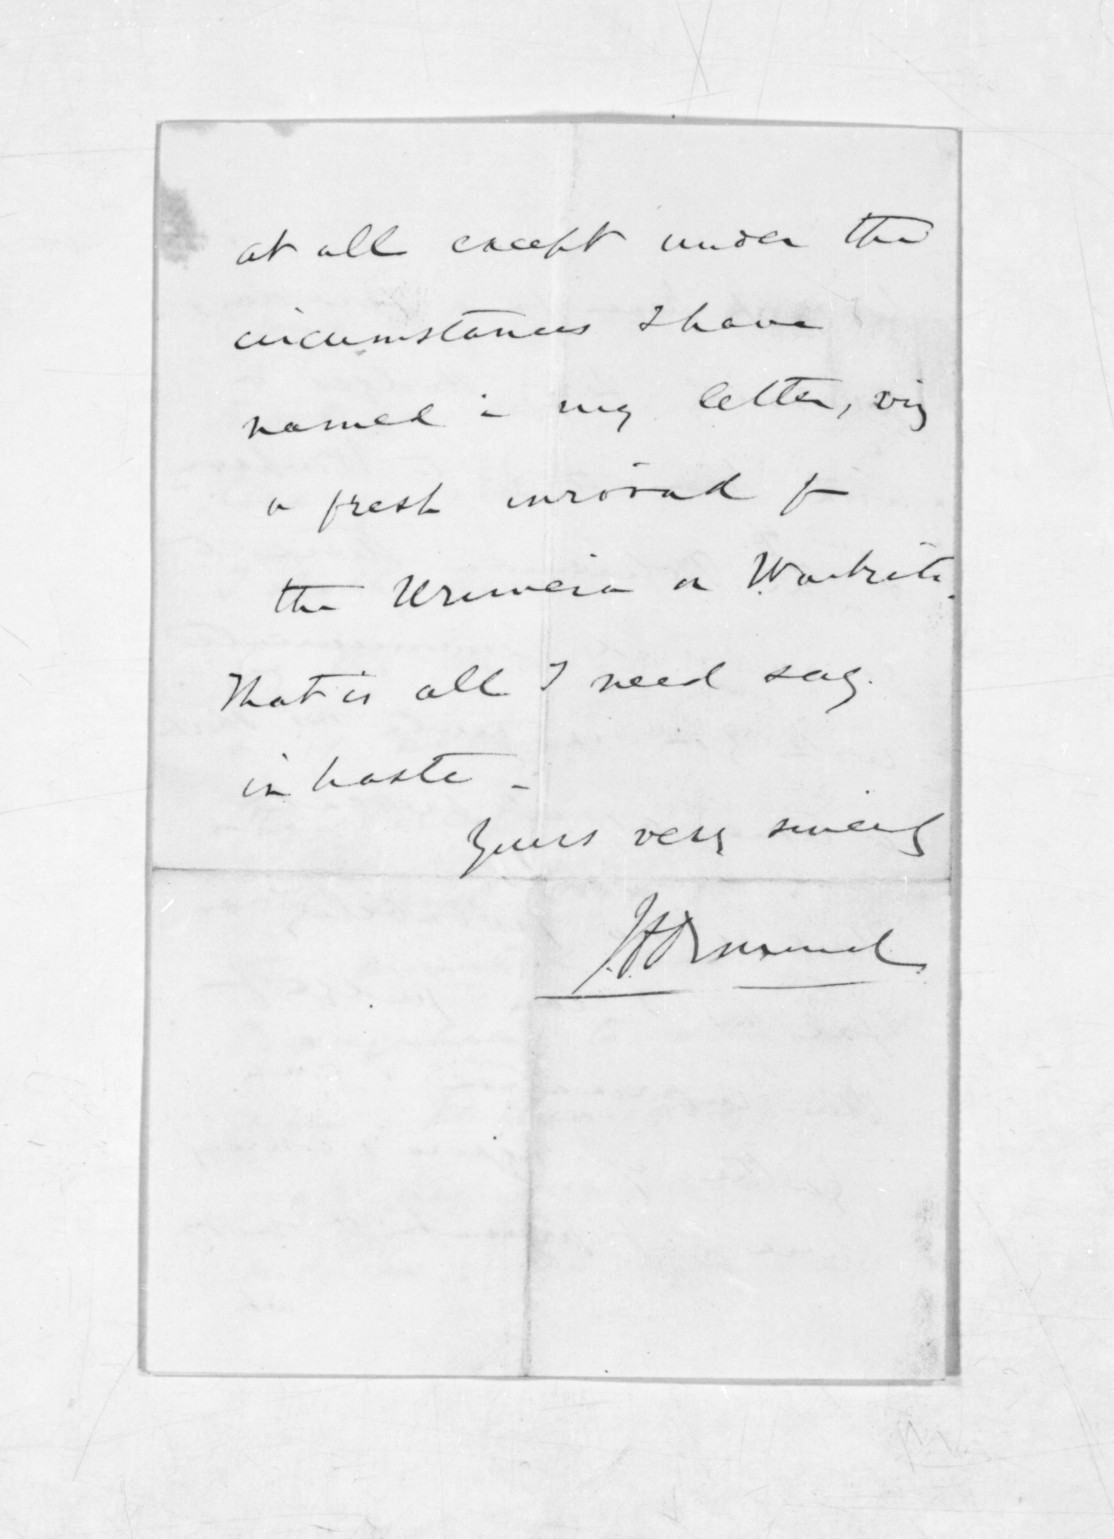 at all except under the
circumstances I have
named in my letter, viz
a fresh inroad fm
the Urewera or Waikato.
That is all I need say.
in haste –
Yours very sincerely
J. D. Ormond